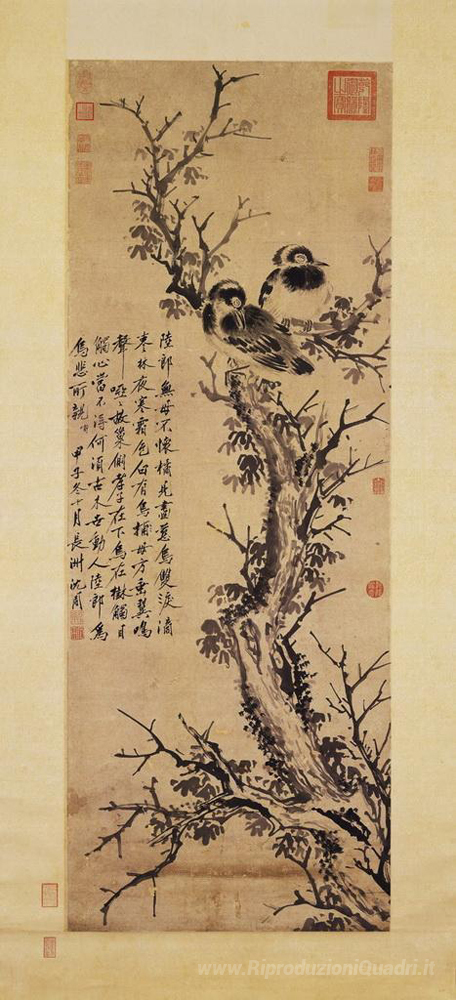 陸郎無母不懷橘見畫慈烏雙淚滴
寒林夜寒霜色白有烏方垂翼鳴
聲啞〻故巢側孝子在下烏在樹觸目
觸心當不得何須古木動人陸郎為
烏悲所親
甲子冬十月長洲沈周
www.RiproduzioniQuadri.it